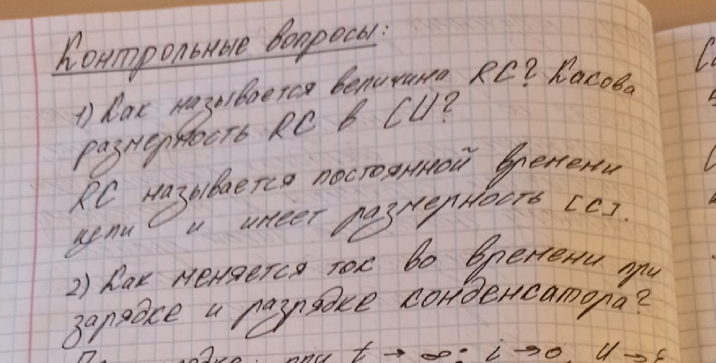 Контрольные вопросы:
1) Как называется величина RC? Какова
размерность RC в СИ?
RC называется постоянной времени
цепи и имеет размерность [с].
2) Как меняется ток во времени при
зарядке и разрядке конденсатора?
при t → ∞: i → 0